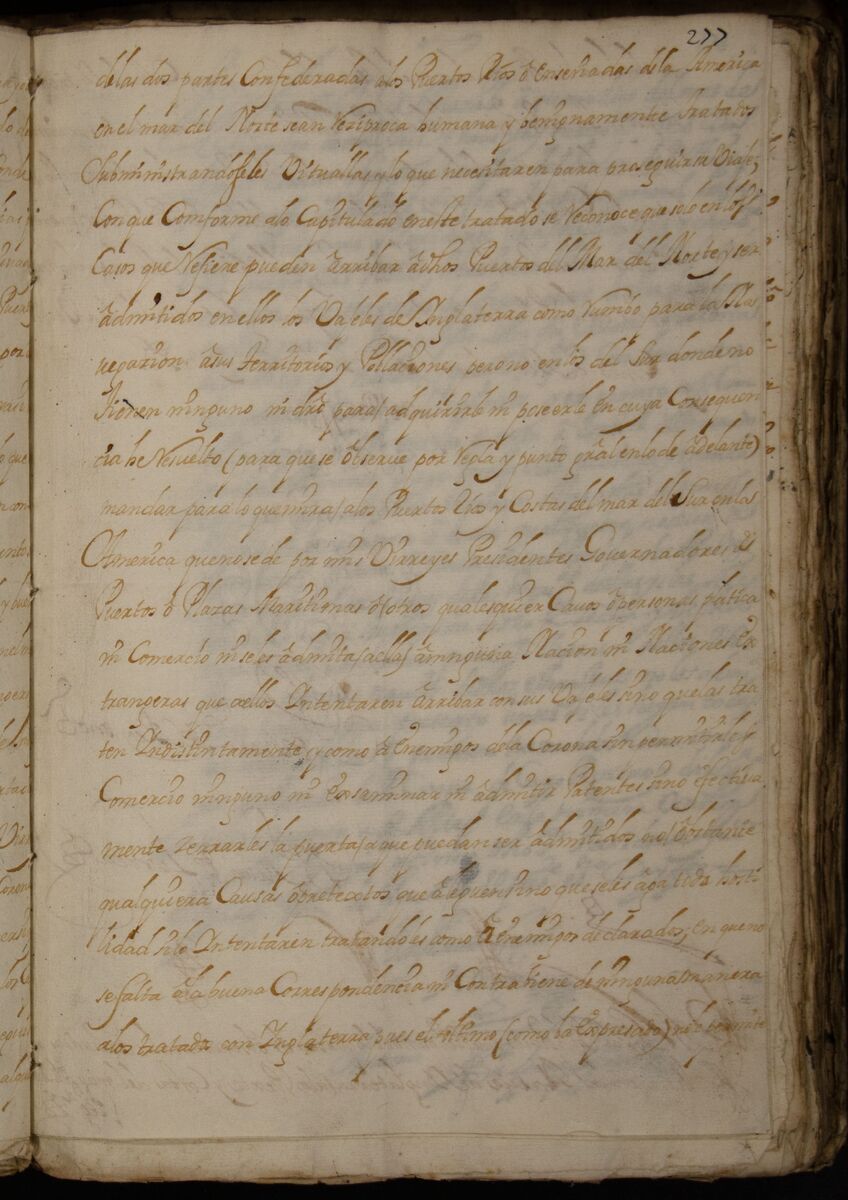 277
delas dos partes Confederadas alos Puertos Rios ô Enseñadas dela America
en el mar del Norte sean Reziproca humana y benignamente tratados
Subministrandoseles Vituallas y lo que necesitaren para proseguir su Viaje;
Con que Comforme alo Capitulado en este tratado se Reconoce que solo en los
Casos que Refiere pueden ârribar âdhos Puertos del Mar del Norte y ser
âdmitidos en ellos los Vaxeles de Inglaterra como rumbo para la Na
vegazion âsus territorios y Poblaciones pero no en los del Sur donde no
tienen ninguno ni dro para adquirirle ni poseerle En cuya Consequen
cia he Resuelto (para que se ôbserve por Regla y punto gral en lo de âdelante)
mandar para lo que mira alos Puertos Rios y Costas del mar del Sur en las
America que no se de por mis Virreyes Presidentes Governadores de
Puertos ô Plazas Maritimas ô otros qualesquier Cavos ô personas platica
ni Comercio ni seles âdmita (aella) âninguna Nacion ni Naciones Ex
trangeras que âellos Intentaren ârribar con sus Vaxeles sino que las tra
ten Indistintamente, y como â Enemigos dela Corona sin permitirles
Comercio ninguno ni Exsaminar ni âdmitir Patentes sino efectiva
mente zerrarles la puerta a que puedan ser âdmitidos no obstante
qualquiera Causas ôpretextos que âleguen sino que seles aga toda hosti
lidad silo Intentaren tratandoles como â enemigos declarados; En que no
se falta âla buena Correspondencia ni Contraviene de ninguna manera
alos tratados con Inglaterra pues el ultimo (como ba Expresado) no lo permite